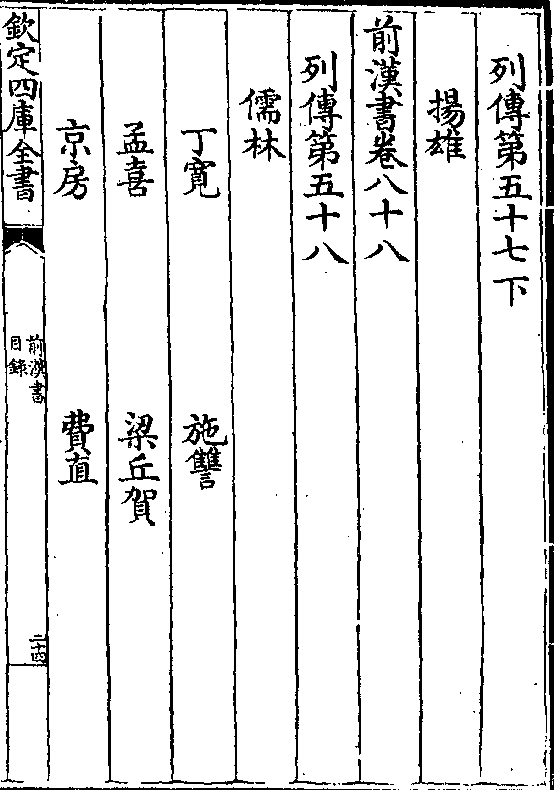 列傳第五十七下
揚雄
前漢書卷八十八
列傳第五十八
儒林
丁寛　施讐
孟喜　梁丘賀
京房　費直
欽定四庫全書
前漢書
目録
二十四